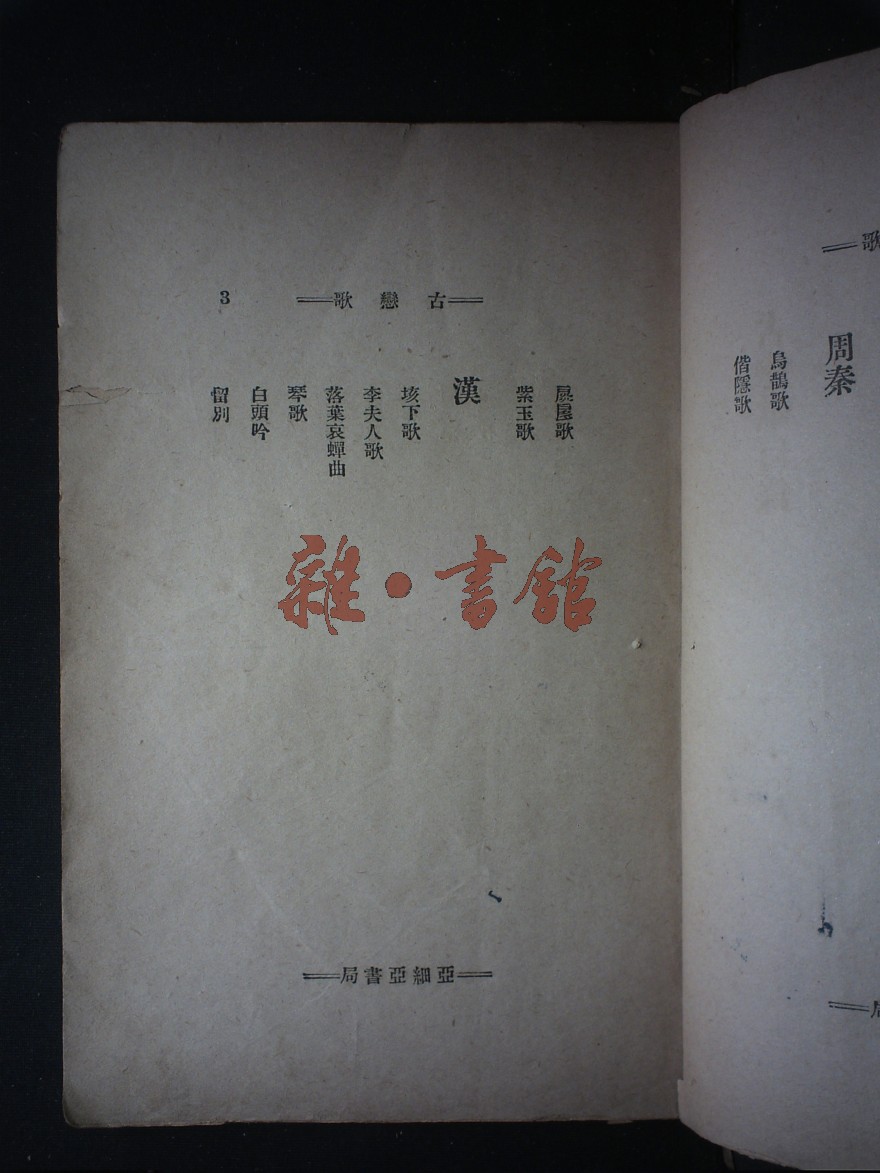 歌
周秦
烏鵲歌
偕隱歌
古戀歌
3
扊扅歌
紫玉歌
漢
垓下歌
李夫人歌
落葉哀蟬曲
琴歌
白頭吟
留別
雜·書館
亞細亞書局